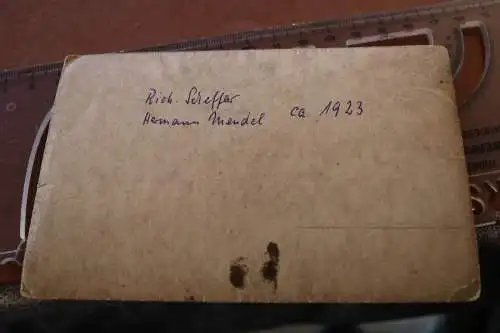 Rich. Scheffer
Hermann Mendel ca 1923